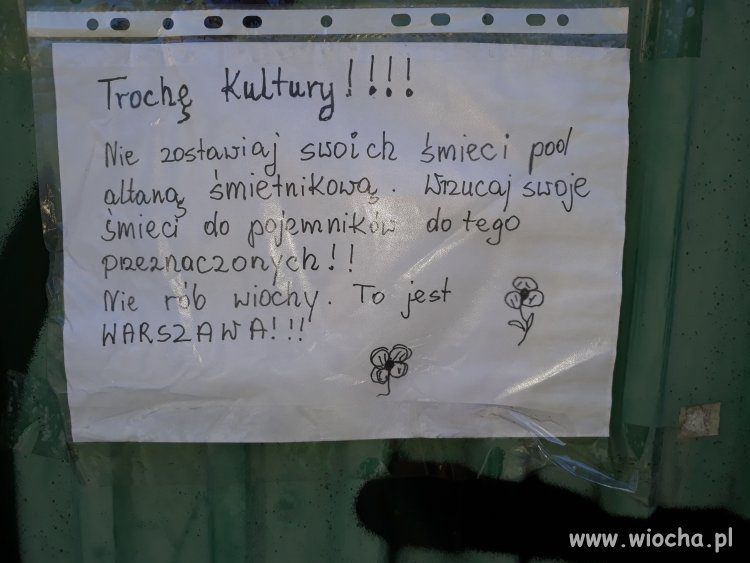 Trochę Kultury!!!!
Nie zostawiaj swoich śmieci pod
altaną śmietnikową. Wrzucaj swoje
śmieci do pojemników do tego
przeznaczonych!!
Nie rób wiochy. To jest
WARSZAWA!!!
www.wiocha.pl